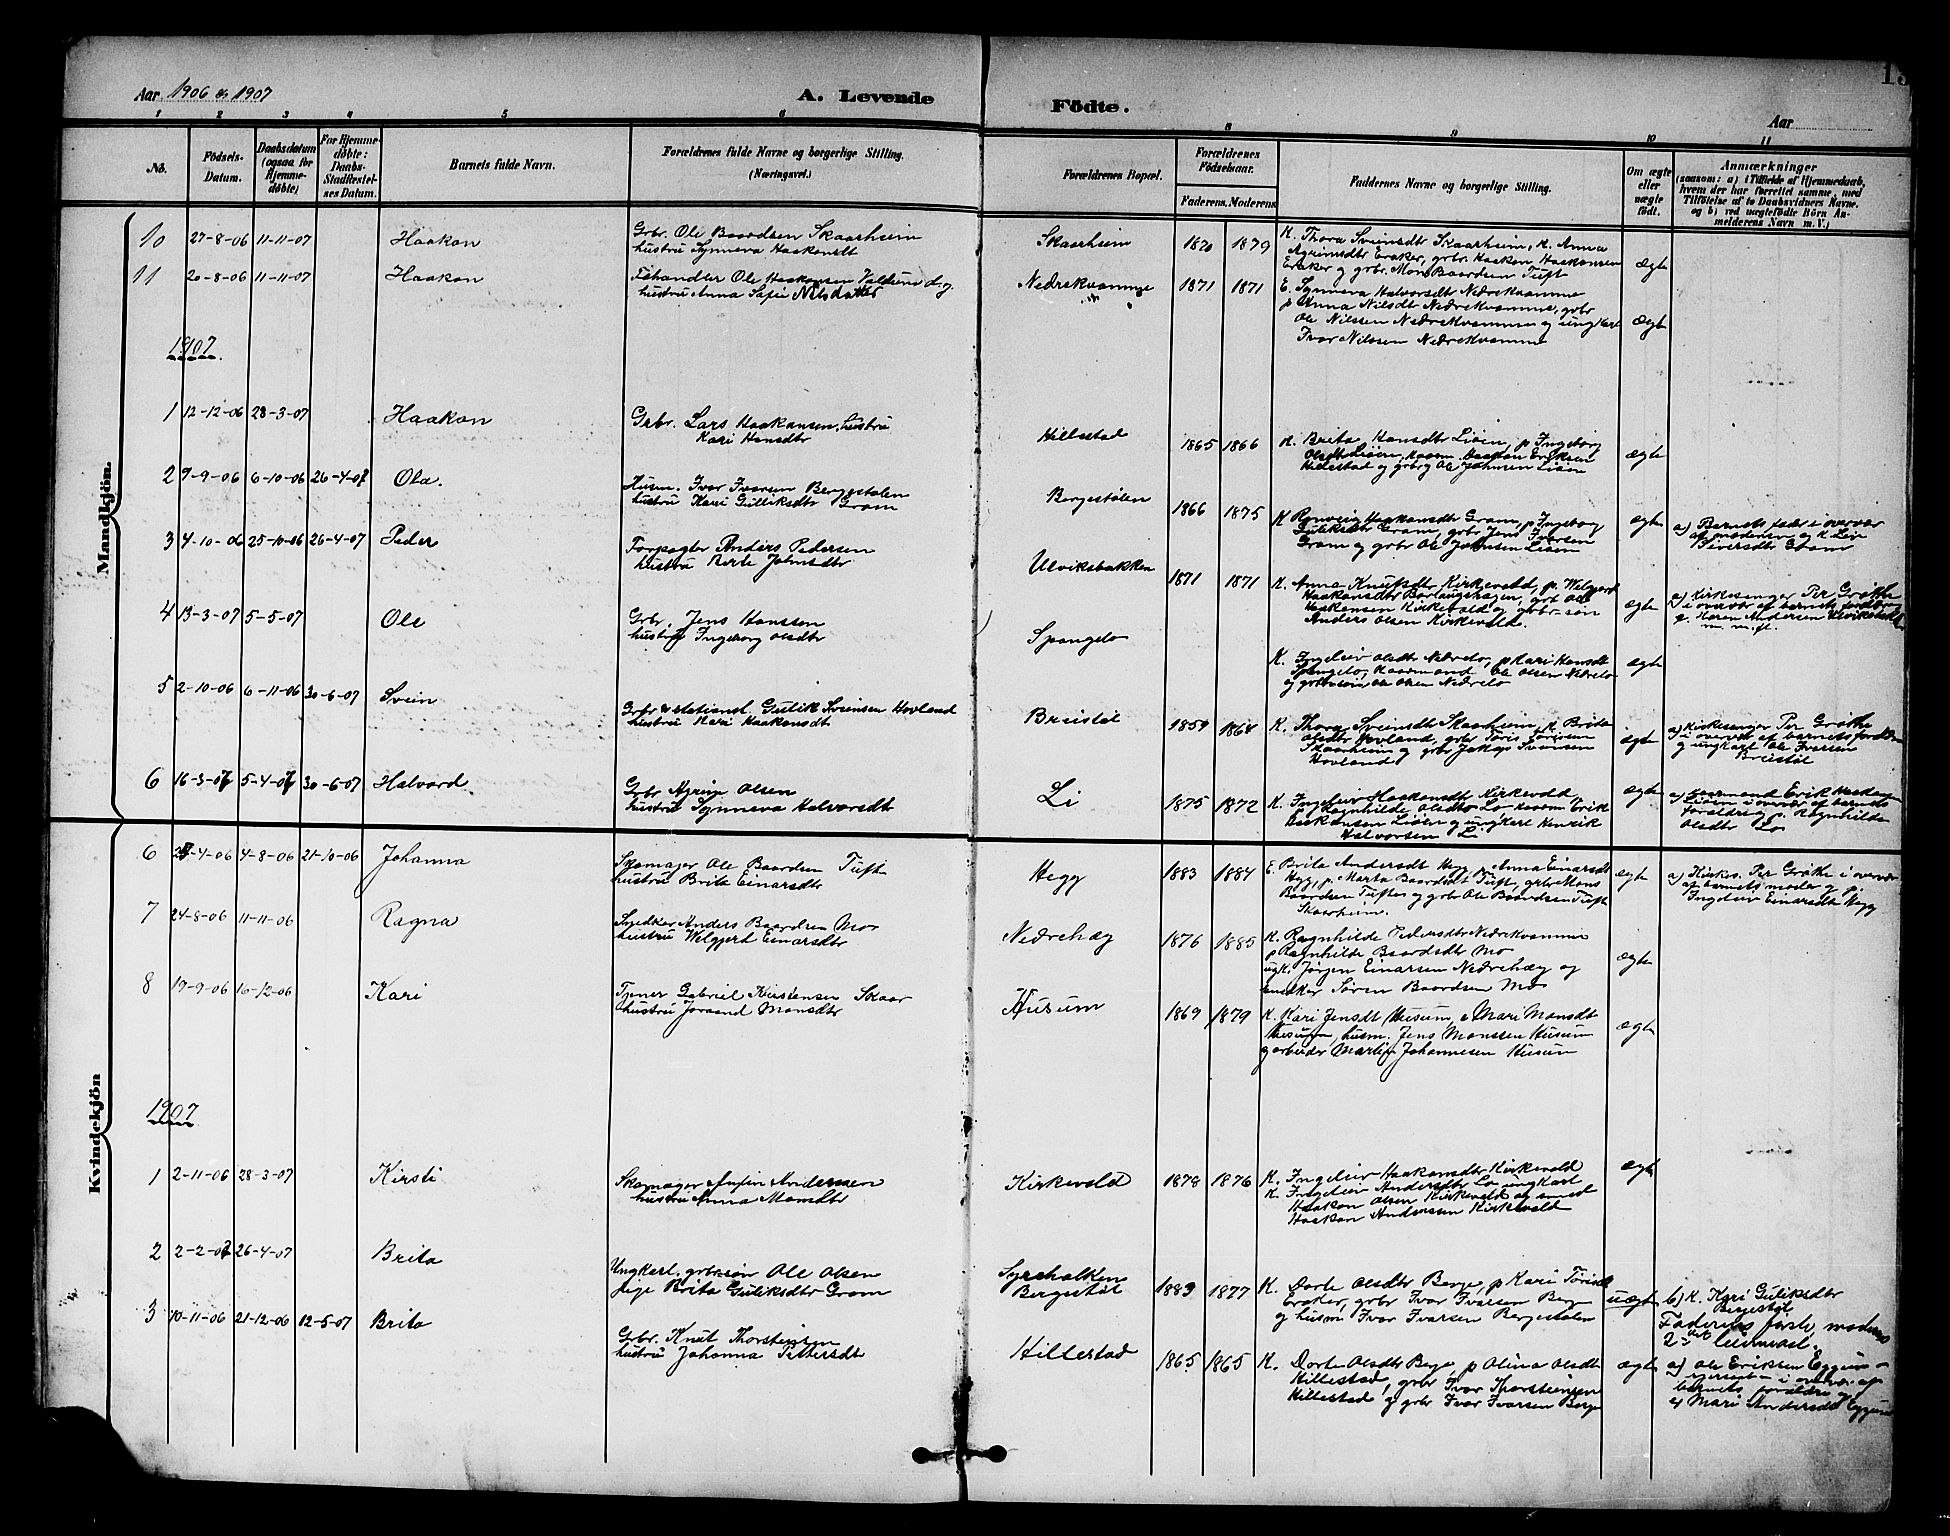 Aar 1906 og 1907
A. Levende
Födte.
Aar
13
1 2 3 4 5 6 8 9 10 11
No.
Födsels-
Datum.
Daabsdatum
(ogsaa för
Hjemme-
döbte)
For Hjemme-
döbte:
Daabs-
Stadfæstel-
ses Datum.
Barnets fulde Navn.
Forældrenes fulde Navne og borgerlige Stilling.
(Næringsvei.)
Forældrenes Bopæl.
Forældrenes
Födselsaar.
Faderens. Moderens.
Faddernes Navne og borgerlige Stilling.
Om ægte
eller
uægte
födt.
Anmærkninger
(saasom: a) i Tilfælde af Hjemmedaab,
hvem der har forrettet samme, med
Tilföielse af to Daabsvidners Navne.
og b) ved uægtefödte Börn An-
melderens Navn m. V.)
Mandkjön.
10 27-8-06 11-11-07 Haakon
Grbr. Ole Baardsen Skaarheim
hustru Synneva Haakensdt
Skaarheim 1870 1879
K. Thora Sveinsdt Skaarheim, K. Anna
Agrimsdt Eraker, grbr. Haaken Haakensen
Eraker og grbr. Mons Baardsen Tuft
ægte
11 20-8-06 11-11-07 Haakon
Fehandler Ole Haakensen Valdune d.y.
hustru Anna Sofie Nilsdatter
Nedrekvamme 1871 1871
E. Synneva Halvorsdt Nedrekvamme
p Anna Nilsdt Nedrekvamme, grbr
Ole Nilssen Nedrekvamme og ungkarl
Ivar Nilssen Nedrekvamme
ægte
1907
1 12-12-06 28-3-07 Haakon
Grbr. Lars Haakensen, hustru
Kari Hansdtr
Hillestad 1865 1866
K. Brita Hansdtr Liöen, p Ingeborg
Olsdt Liöen, Haakon Eriksen
Hillestad og grbr Ole Johnsen Liöen
ægte
2 7-9-06 6-10-06 26-4-07 Ola.
Husm. Ivar Ivarsen Bergestölen
hustru Kari Gulliksdtr Gram
Bergestölen 1866 1875
K Rønveig Haakonsdtr Gram, p Ingeborg
Guliksdtr Gram, grbr Jens Ivarsen
Gram og grbr Ole Johnsen Liöen
ægte
a) Barnets fader i overvær
af moderen og K Livi
Siversdtr Gram
3 4-10-06 25-10-06 26-4-07 Peder
Forpagter Anders Pedersen
hustru Berte Johnsdtr
Ulviksbakken 1871 1871
K. Anna Knutsdtr Kirkevold, p. Welgjerd
Haakansdtr Borlaugshagen, grbr Ole
Haakensen Kirkevold og grbr-søn
Anders Olsen Kirkevold.
ægte
a) Kirkesanger Per Gröthe
i overvær af barnets forældre
p. Haren Andersen Ulviksbakk
m. m. fl.
4 13-3-07 5-5-07 Ole
Grbr. Jens Hanssen
hustru Ingeborg Olsdtr
Spangelo
K. Ingeleiv Olsdtr Nedrelo, p Kari Hansdt
Spangelo, Kaarmand Ole Olsen Nedrelo
og grbrsøn Ole Olsen Nedrelo
ægte
5 2-10-06 6-11-06 30-6-07 Svein
Grbr & stationsf. Gulik Sveinsen Hovland
hustru Kari Haakonsdt
Breistöl 1859 1864
K. Thora Sveinsdt Skaarheim, K. Brita
Olsdtr Hovland, grbr Töris Törissen
Skaarheim og grbr Jakop Sveinsen
Hovland
ægte
a) Kirkesanger Per Gröthe
i overvær af barnets forældre
og ungkarl Ole Iversen
Breistöl
6 16-3-07 5-4-07 30-6-07 Halvard
Grbr Agrim Olsen
hustru Synneva Halvorsdt
Li 1875 1872
K. Ingeleiv Haakonsdt Kirkevold
p Ragnhilde Olsdtr Lo Kaarm Erik
Haakensen Liöen og ungkarl Henrik
Halvorsen Li
ægte
a) Kaarmand Erik Haaken
Liöen i overvær af barnets
forældre og p. Ragnhilde
Olsdtr Lo
Kvindekjön
6 28-4-06 4-8-06 21-10-06 Johanna
Skomager Ole Baardsen Tuft
hustru Brita Einarsdtr
Hegg 1883 1884
E. Brita Andersdt Hegg p Anna Einarsdt
Hegg, p. Marta Baardsdt Tuft, grbr Mons
Baardsen Tuften og grbr Ole Baardsen Tuft
Skaarheim.
ægte
a) Kirkes. Per Gröthe i overvær
af barnets moder og p.
Ingeleiv Einarsdtr Hegg
7 24-8-06 11-11-06 Ragna
Snedker Anders Baardsen Mo
hustru Welgjerd Einarsdtr
Nedrehæg 1876 1885
K. Ragnhilde Pedersdtr Nedrekvamme
p Ragnhilde Baardsdtr Mo
ugk. Jörgen Einarsen Nedrehæg og
snedker Sören Baardsen Mo
ægte
8 19-9-06 16-12-06 Kari
Tjener Gabriel Kristensen Skaar
hustru Jorand Monsdtr
Husum 1869 1879
K. Kari Jensdt Husum, p Mari Monsdt
Husum, husm. Jens Monssen Husum
og arbeider Martin Johannesen Husum
ægte
1907
1 2-11-06 28-3-07 Kirsti
Skomager Anfin Anderssen
hustru Anna Monsdtr
Kirkevold 1878 1876
K. Ingeleiv Haakonsdtr Kirkevold
K. Ingeleiv Andersdtr Lo ungkarl
Haakon Olsen Kirkevold og smed
Haakon Andersen Kirkevold
ægte
2 2-2-07 26-4-07 Brita
Ungkarl, grbrsøn Ole Olsen
pige Brita Guliksdtr Gram
Bergestöl 1883 1877
K. Dorte Olsdtr Berge, p Kari Törisdt
Eraker, grbr Ivar Ivarsen Berge
og husm Ivar Ivarsen Bergestølen
uægte
b) K. Kari Guliksdtr
Bergestöl
Faderens første, moderens
2det leiermaal.
3 10-11-06 21-12-06 12-5-07 Brita
Grbr. Knut Thorsteinsen
hustru Johanna Pettersdt
Hillestad 1865 1865
K. Dorte Olsdtr Berge, p Olina Olsdt
Hillestad, grbr Ivar Thorsteinsen
Hillestad og grbr Ivar Ivarsen Berge
ægte
a) Ole Eriksen Eggum
i overvær af
barnets forældre og
Mari Andersdt Eggum